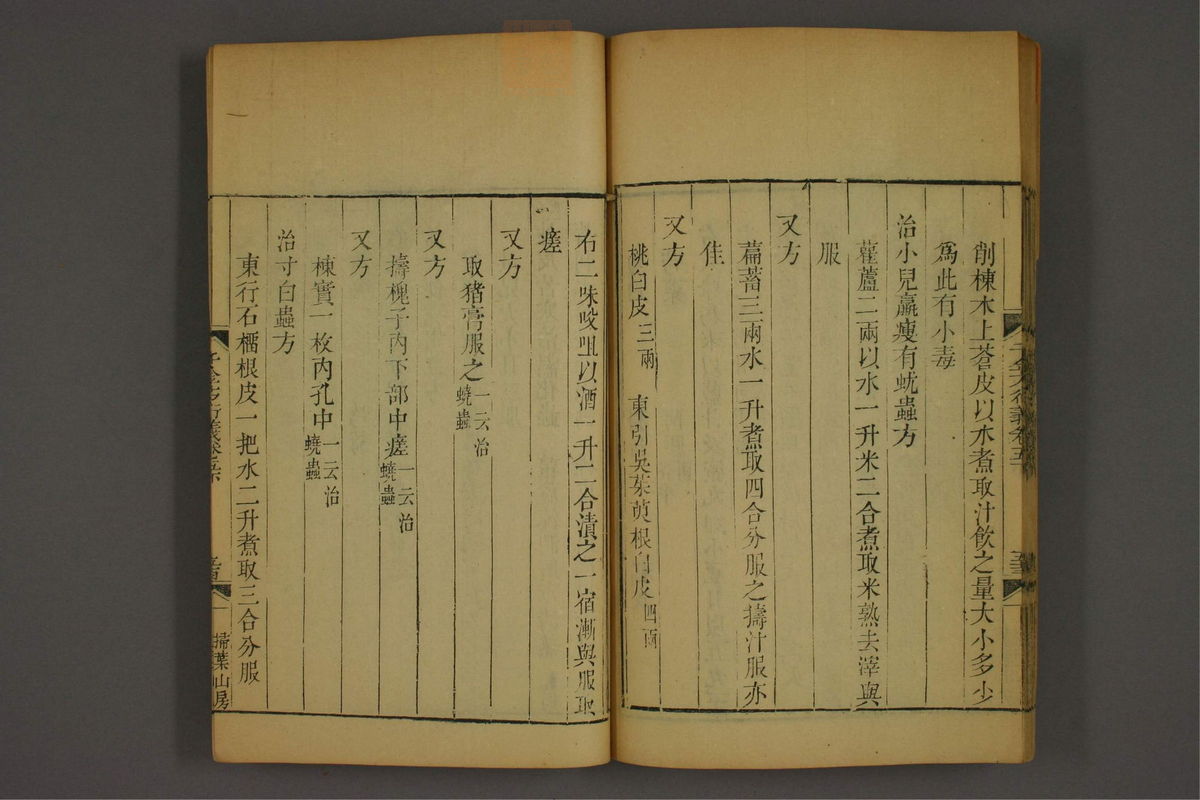 削楝木上蒼皮以水煮取汁飲之量大小多少
爲此有小毒
治小兒羸瘦有蚘蟲方
雚蘆二兩以水一升米二合煮取米熟去滓與
服
又方
萹蓄三兩水一升煮取四合分服之擣汁服亦
佳
又方
桃白皮三兩 東引吳茱萸根白皮四兩
右二味㕮咀以酒一升二合漬之一宿漸與服取
瘥
又方
取猪膏服之一云治蟯蟲
又方
擣槐子内下部中瘥一云治蟯蟲
又方
楝實一枚内孔中一云治蟯蟲
治寸白蟲方
東行石榴根皮一把水二升煮取三合分服
掃葉山房